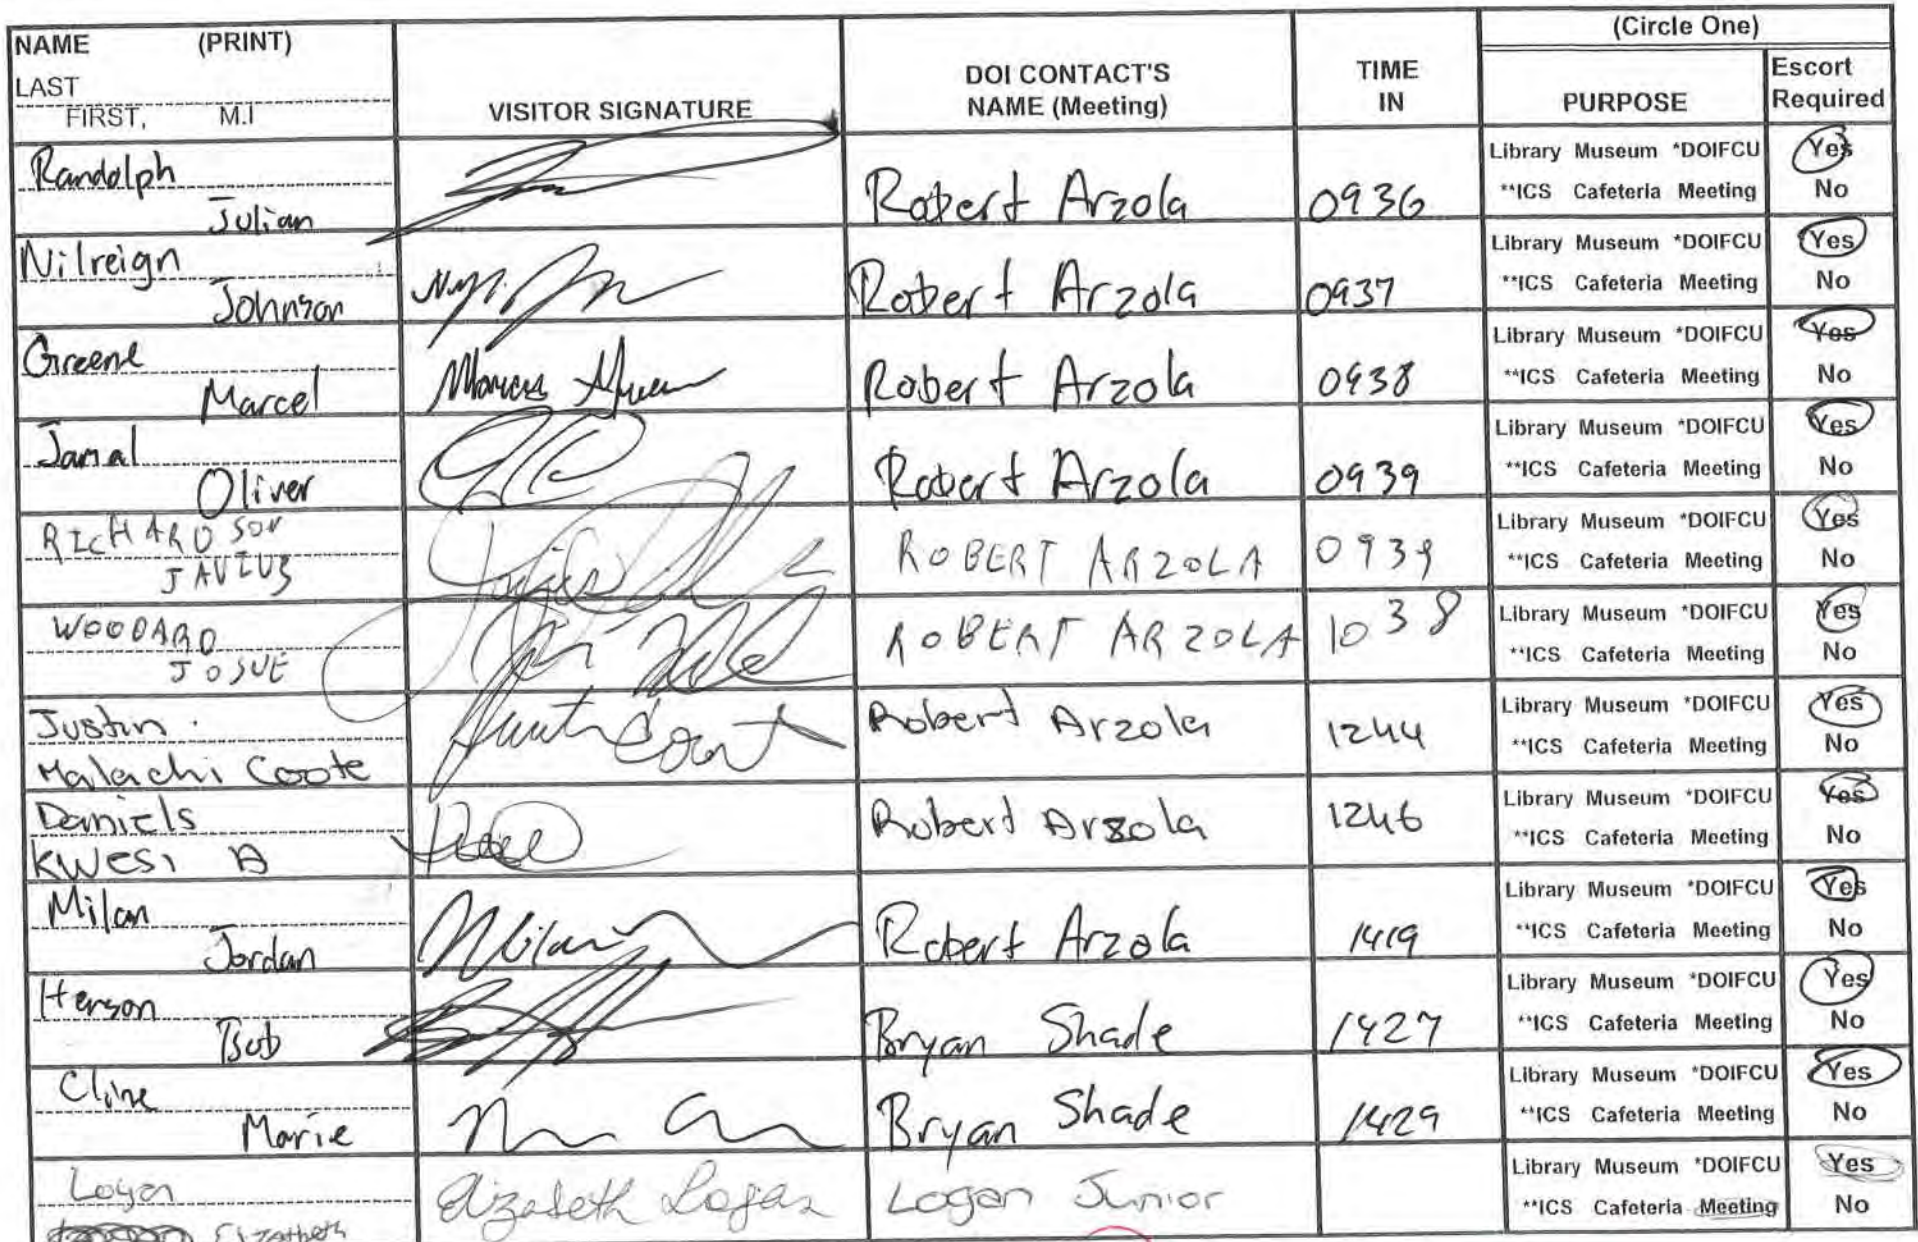 (Circle One)
NAME (PRINT)
LAST
FIRST, M.I
VISITOR SIGNATURE
DOI CONTACT'S
NAME (Meeting)
TIME
IN
PURPOSE
Escort
Required
Randolph
Julian
Robert Arzola
0936
Library Museum *DOIFCU
**ICS Cafeteria Meeting
Yes
No
Nilreign
Johnson
Robert Arzola
0937
Library Museum *DOIFCU
**ICS Cafeteria Meeting
Yes
No
Greene
Marcel
Robert Arzola
0938
Library Museum *DOIFCU
**ICS Cafeteria Meeting
Yes
No
Jamal
Oliver
Robert Arzola
0939
Library Museum *DOIFCU
**ICS Cafeteria Meeting
Yes
No
RICHARDSON
JAVIUS
ROBERT ARZOLA
0939
Library Museum *DOIFCU
**ICS Cafeteria Meeting
Yes
No
WOODARD
JOSUE
ROBERT ARZOLA
1038
Library Museum *DOIFCU
**ICS Cafeteria Meeting
Yes
No
Justin
Malachi Coote
Robert Arzola
1244
Library Museum *DOIFCU
**ICS Cafeteria Meeting
Yes
No
Daniels
KWESI D
Robert Arzola
1246
Library Museum *DOIFCU
**ICS Cafeteria Meeting
Yes
No
Milan
Jordan
Milan
Robert Arzola
1419
Library Museum *DOIFCU
**ICS Cafeteria Meeting
Yes
No
Herson
Bob
Bryan Shade
1427
Library Museum *DOIFCU
**ICS Cafeteria Meeting
Yes
No
Cline
Marie
Bryan Shade
1429
Library Museum *DOIFCU
**ICS Cafeteria Meeting
Yes
No
Logan
Elizabeth
Elizabeth Logan
Logan Junior
Library Museum *DOIFCU
**ICS Cafeteria Meeting
Yes
No